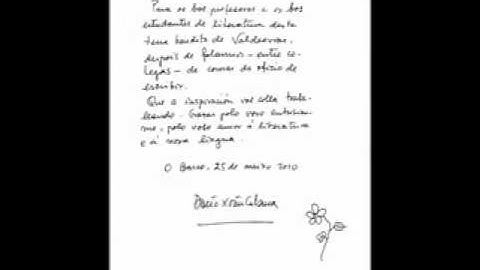 Para os bos profesores e os bos
estudantes de literatura desta
terra bendita de Valdeorras,
despois de falarmos – entre co-
legas – de cousas do oficio de
escribir.
Que a inspiración vos colla traba-
llando. Grazas polo voso entusias-
mo, polo voso amor á literatura
e á nosa lingua.
O Barco, 25 de marzo 2010
Darío Xohán Cabana